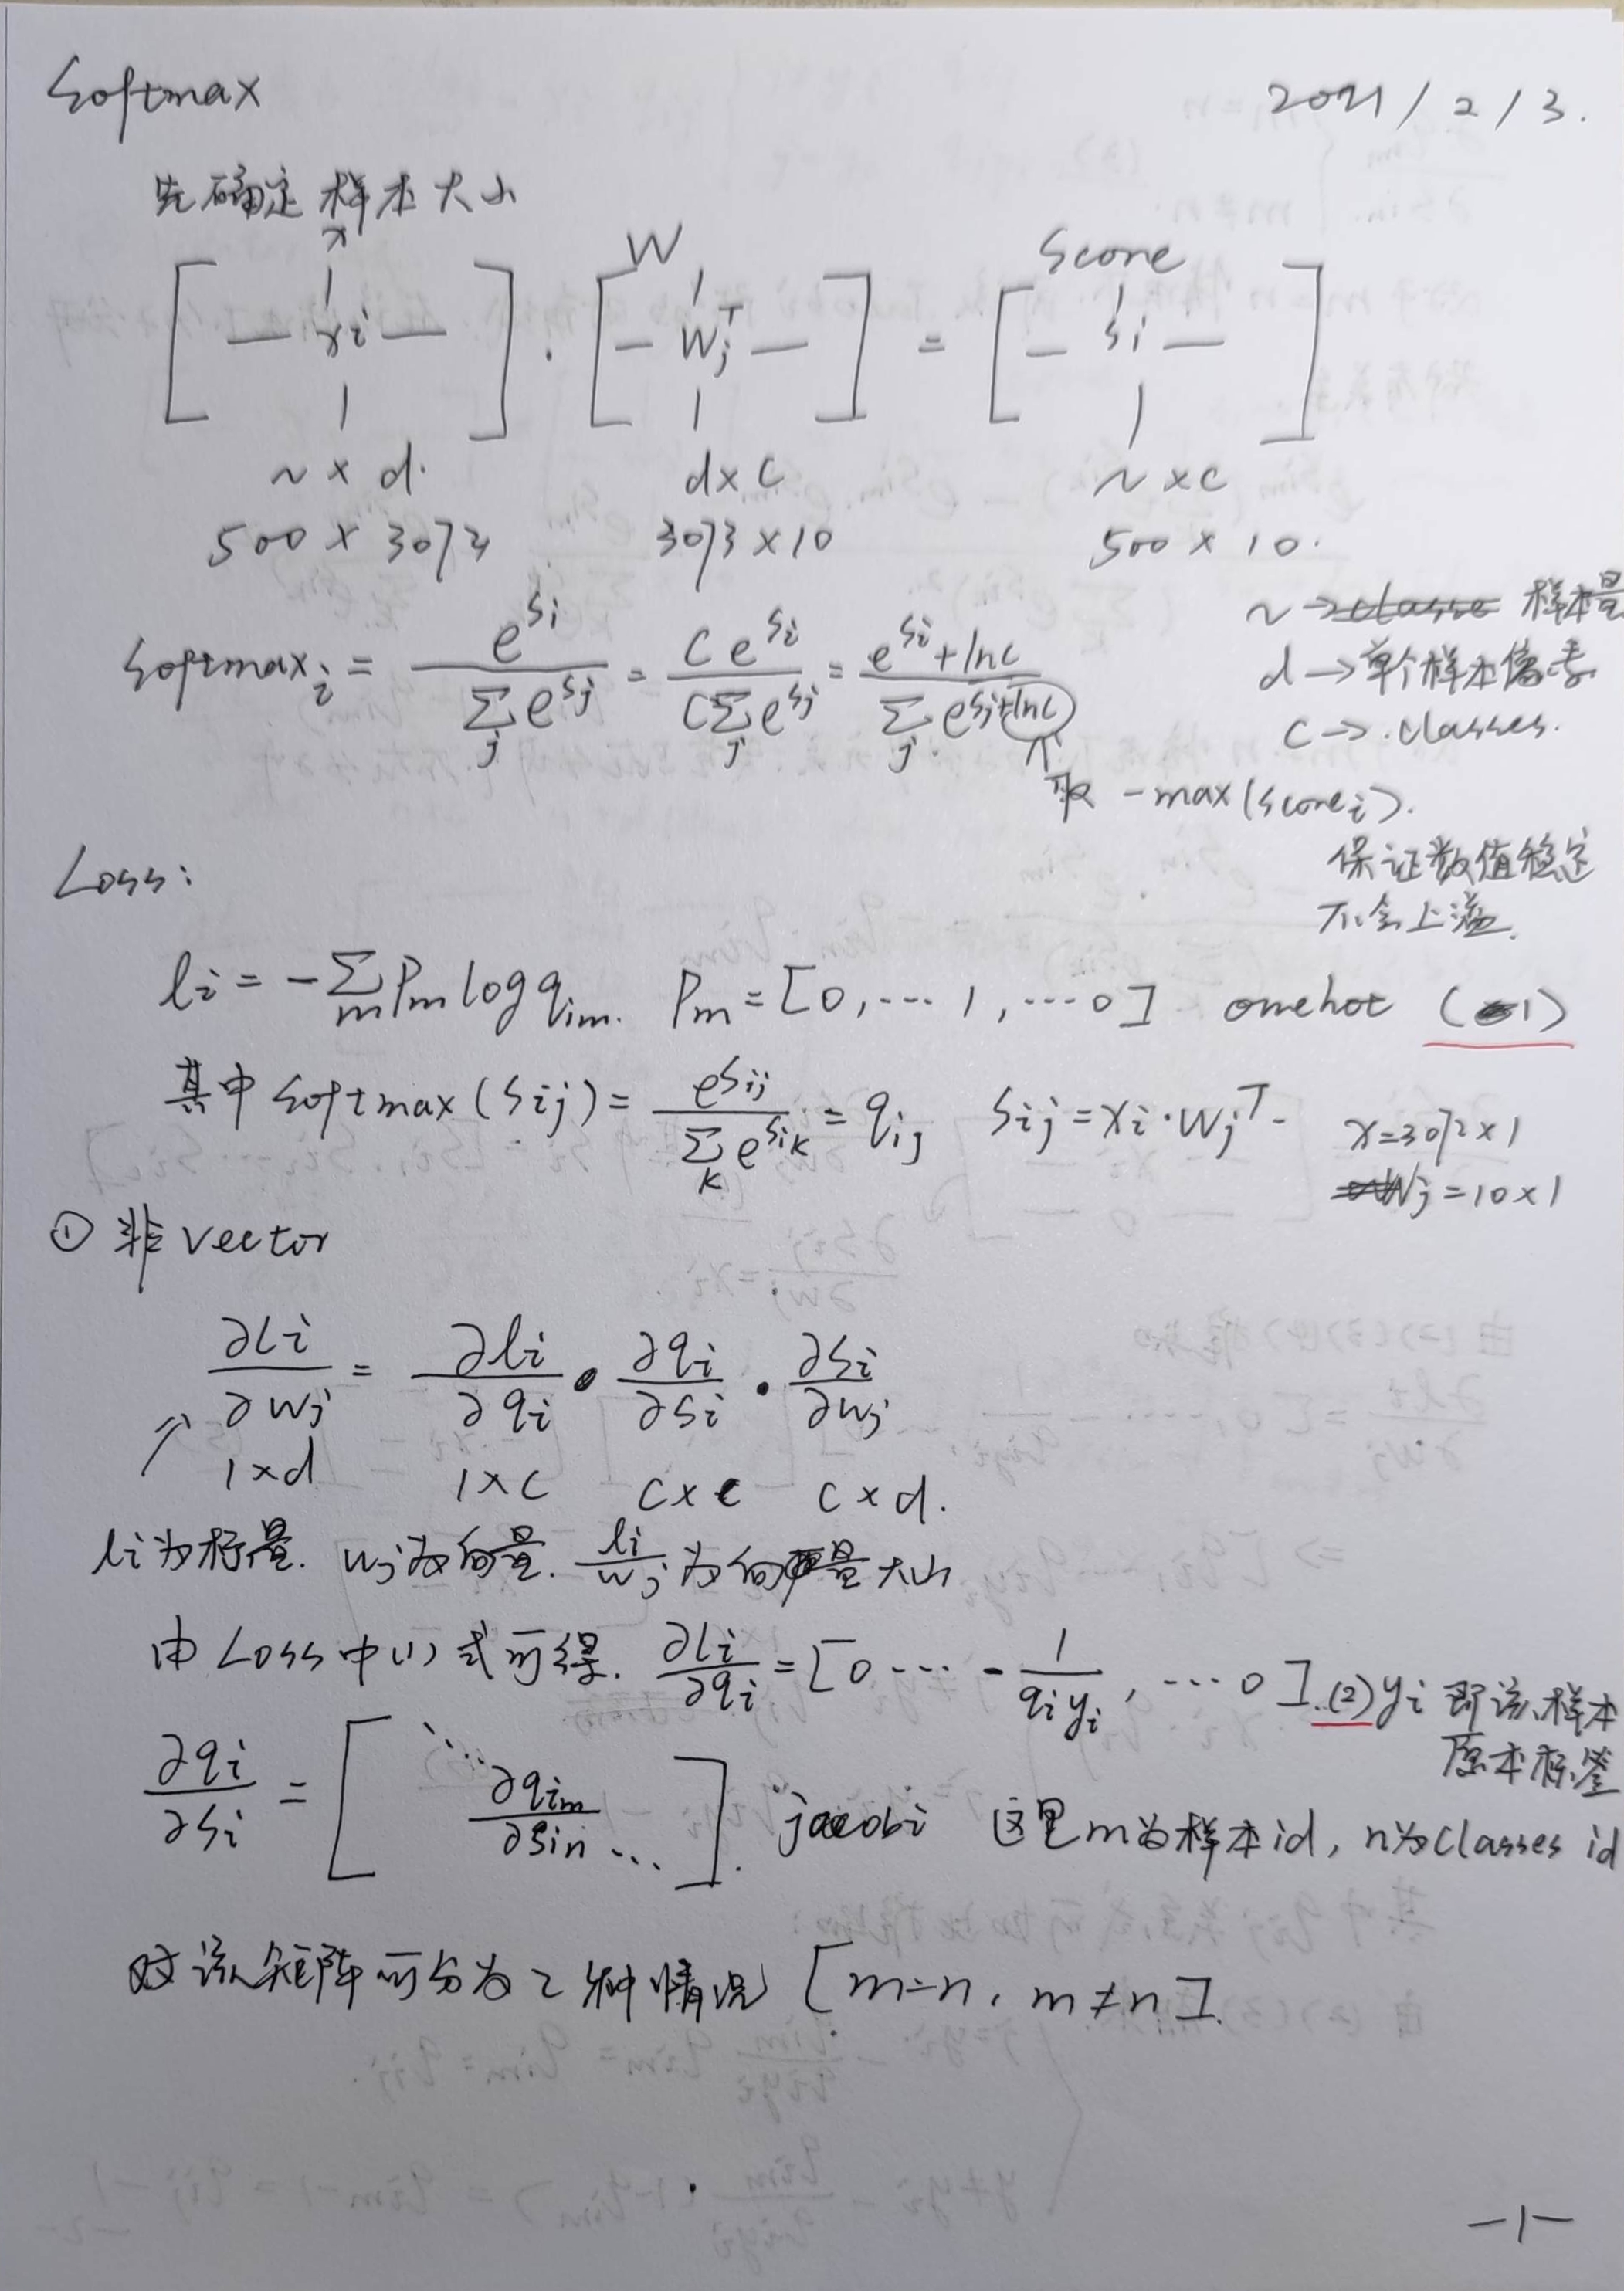 Softmax 2021/2/3.
先确定样本大小
x W Score
[— xi —] · [— Wj^T —] = [— Si —]
N×d. d×C N×C
500×3073 3073×10 500×10.
N→ 样本量
d→单个样本像素
C→.classes.
Softmax_i = e^{Si} / Σ_j e^{Sj} = C e^{Si} / C Σ_j e^{Sj} = e^{Si+lnC} / Σ_j e^{Sj+lnC}
↑取 -max(score_i).
保证数值稳定
不会上溢.
Loss:
li = -Σ_m Pm log q_im. Pm=[0,…1,…0] onehot (1)
其中 Softmax(Sij) = e^{Sij} / Σ_k e^{Sik} = qij Sij=Xi·Wj^T.
X=3072×1
Wj=10×1
① 非vector
∂Li/∂Wj = ∂li/∂qi · ∂qi/∂Si · ∂Si/∂Wj
↗ 1×d 1×C C×C C×d.
li为标量. Wj为向量. li/Wj 为向量大小
由 Loss 中(1)式可得. ∂Li/∂qi = [0…-1/q_iyi,…0].(2) yi 即该样本
原本标签
∂qi/∂Si = [⋱ ∂qim/∂Sin …]. jacobi 这里m为样本id, n为classes id
对该矩阵可分为2种情况 [m=n, m≠n].
—1—